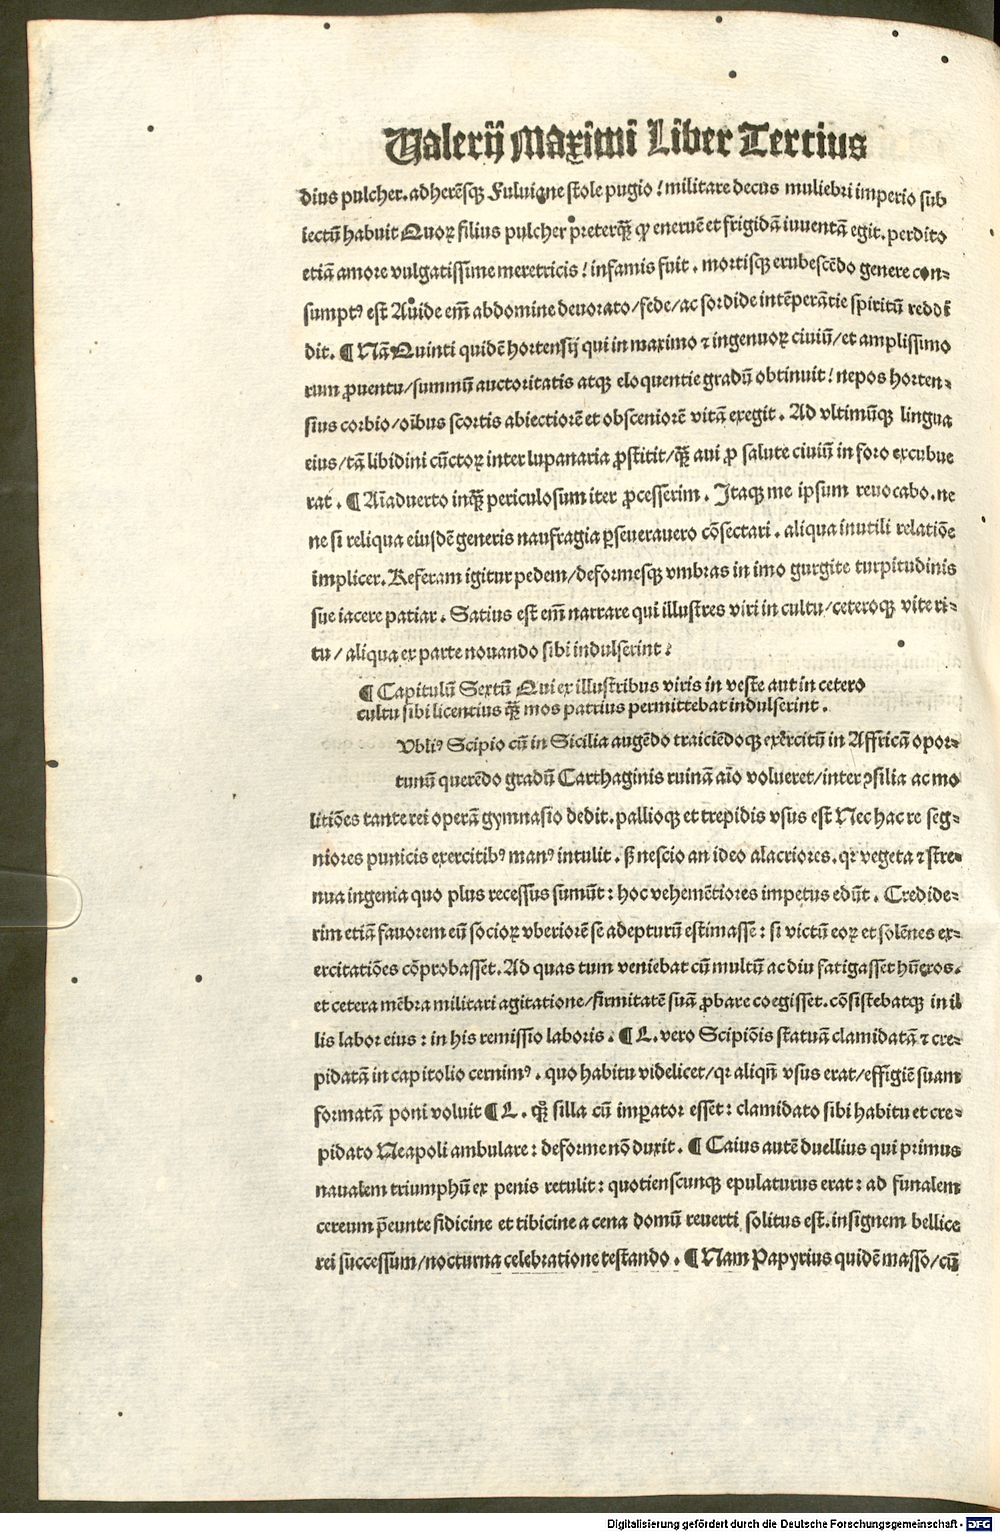 Valerij Maximi Liber Tertius
dius pulcher. adherēsqꝫ Fuluiane stole pugio / militare decus muliebri imperio sub
iectū habuit Quoꝝ filius pulcher p̄terqꝫ̄ ꝙ eneruē et frigidā iuuentā egit. perdito
etiā amore vulgatissime meretricis / infamis fuit. mortisqꝫ erubescēdo genere con-
sumptꝰ est Auide em̄ abdomine deuorato / fede / ac sordide intēperātie spiritū reddi
dit. ¶ Nā Quinti quidē hortensij qui in maximo ⁊ ingenuoꝝ ciuiū / et amplissimo
rum ꝓuentu / summū auctoritatis atqꝫ eloquentie gradū obtinuit / nepos horten-
sius corbio / oībus scortis abiectiorē et obsceniorē vitā exegit. Ad vltimūqꝫ lingua
eius / tā libidini cūctoꝝ inter lupanaria ꝓstitit / qꝫ̄ aui ꝓ salute ciuiū in foro excubue
rat. ¶ Aīaduerto inqꝫ̄ periculosum iter ꝓcesserim. Itaqꝫ me ipsum reuocabo. ne
ne si reliqua eiusdē generis naufragia ꝑseuerauero cōsectari. aliqua inutili relatiōe
implicer. Referam igitur pedem / deformesqꝫ vmbras in imo gurgite turpitudinis
sue iacere patiar. Satius est em̄ narrare qui illustres viri in cultu / ceteroqꝫ vite ri-
tu / aliqua ex parte nouando sibi indulserint :
¶ Capitulū Sextū Qui ex illustribus viris in veste aut in cetero
cultu sibi licentius qꝫ̄ mos patrius permittebat indulserint.
Vbliꝰ Scipio cū in Sicilia augēdo traiciēdoqꝫ exercitū in Affricā opor-
tunū querēdo gradū Carthaginis ruinā aīo volueret / inter ꝯsilia ac mo
litiōes tante rei operā gymnasio dedit. pallioqꝫ et trepidis vsus est Nec hac re seg-
niores punicis exercitibꝰ manꝰ intulit. sꝫ nescio an ideo alacriores. qꝛ vegeta ⁊ stre-
nua ingenia quo plus recessus sumūt : hoc vehemētiores impetus edūt. Credide-
rim etiā fauorem eū socioꝝ vberiorē se adepturū estimasse : si victū eoꝝ et solēnes ex-
ercitatiōes cōprobasset. Ad quas tum veniebat cū multū ac diu fatigasset hūeros.
et cetera mēbra militari agitatione / firmitatē suā ꝓbare coegisset. cōsistebatqꝫ in il
lis labor eius : in his remissio laboris. ¶ L. vero Scipiōis statuā clamidatā ⁊ cre-
pidatā in capitolio cernimꝰ. quo habitu videlicet / qꝛ aliqn̄ vsus erat / effigiē suam
formatā poni voluit ¶ L. qꝫ silla cū imperator esset : clamidato sibi habitu et cre-
pidato Neapoli ambulare : deforme nō duxit. ¶ Caius autē duellius qui primus
naualem triumphū ex penis retulit : quotienscunqꝫ epulaturus erat : ad funalem
cereum p̄eunte fidicine et tibicine a cena domū reuerti solitus est. insignem bellice
rei successum / nocturna celebratione testando. ¶ Nam Papyrius quidē masso / cū
Digitalisierung gefördert durch die Deutsche Forschungsgemeinschaft - DFG